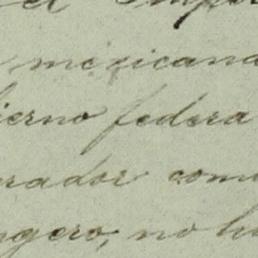 el impo
mexicana
ierno federa
rador com
ngero, no h